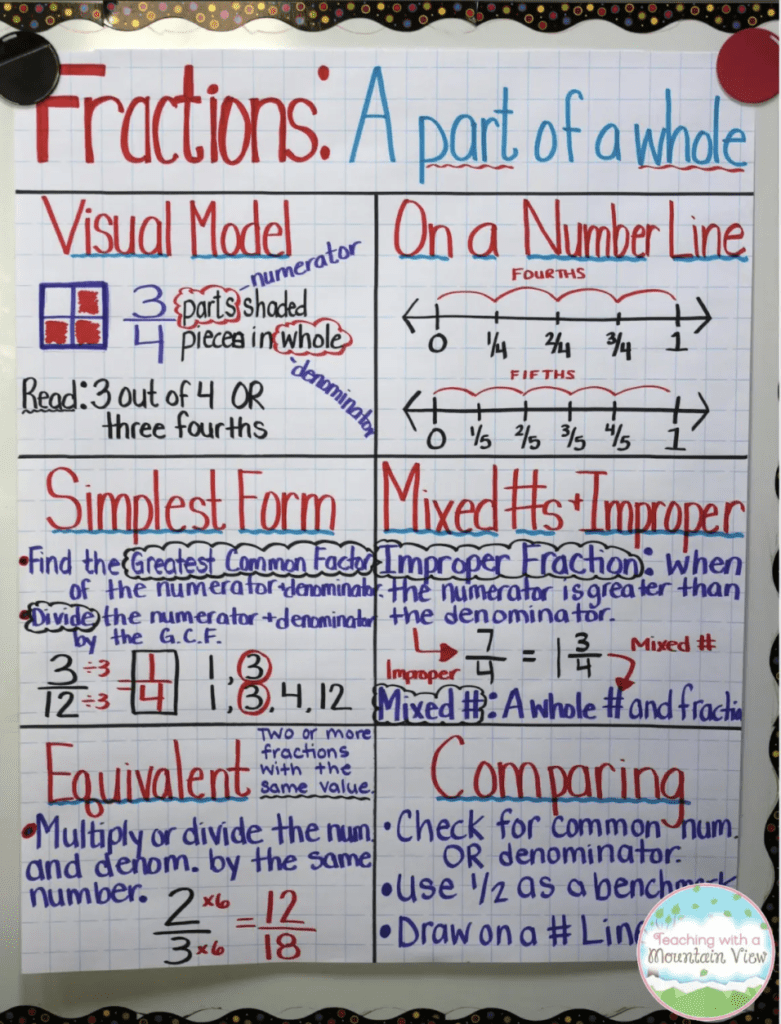 Fractions: A part of a whole
Visual Model
numerator
3/4 parts shaded
pieces in whole
denominator
Read: 3 out of 4 OR
three fourths
On a Number Line
FOURTHS
0 1/4 2/4 3/4 1
FIFTHS
0 1/5 2/5 3/5 4/5 1
Simplest Form
•Find the Greatest Common Factor
of the numerator+denominator.
•Divide the numerator+denominator
by the G.C.F.
3/12 ÷3 ÷3 = 1/4
1, 3
1, 3, 4, 12
Mixed #s + Improper
Improper Fraction: when
the numerator is greater than
the denominator.
Improper 7/4 = 1 3/4 Mixed #
Mixed #: A whole # and fracti
Equivalent
Two or more
fractions
with the
same value.
•Multiply or divide the num.
and denom. by the same
number.
2/3 x6 x6 = 12/18
Comparing
•Check for common num.
OR denominator.
•Use 1/2 as a benchmark
•Draw on a # Line
Teaching with a
Mountain View